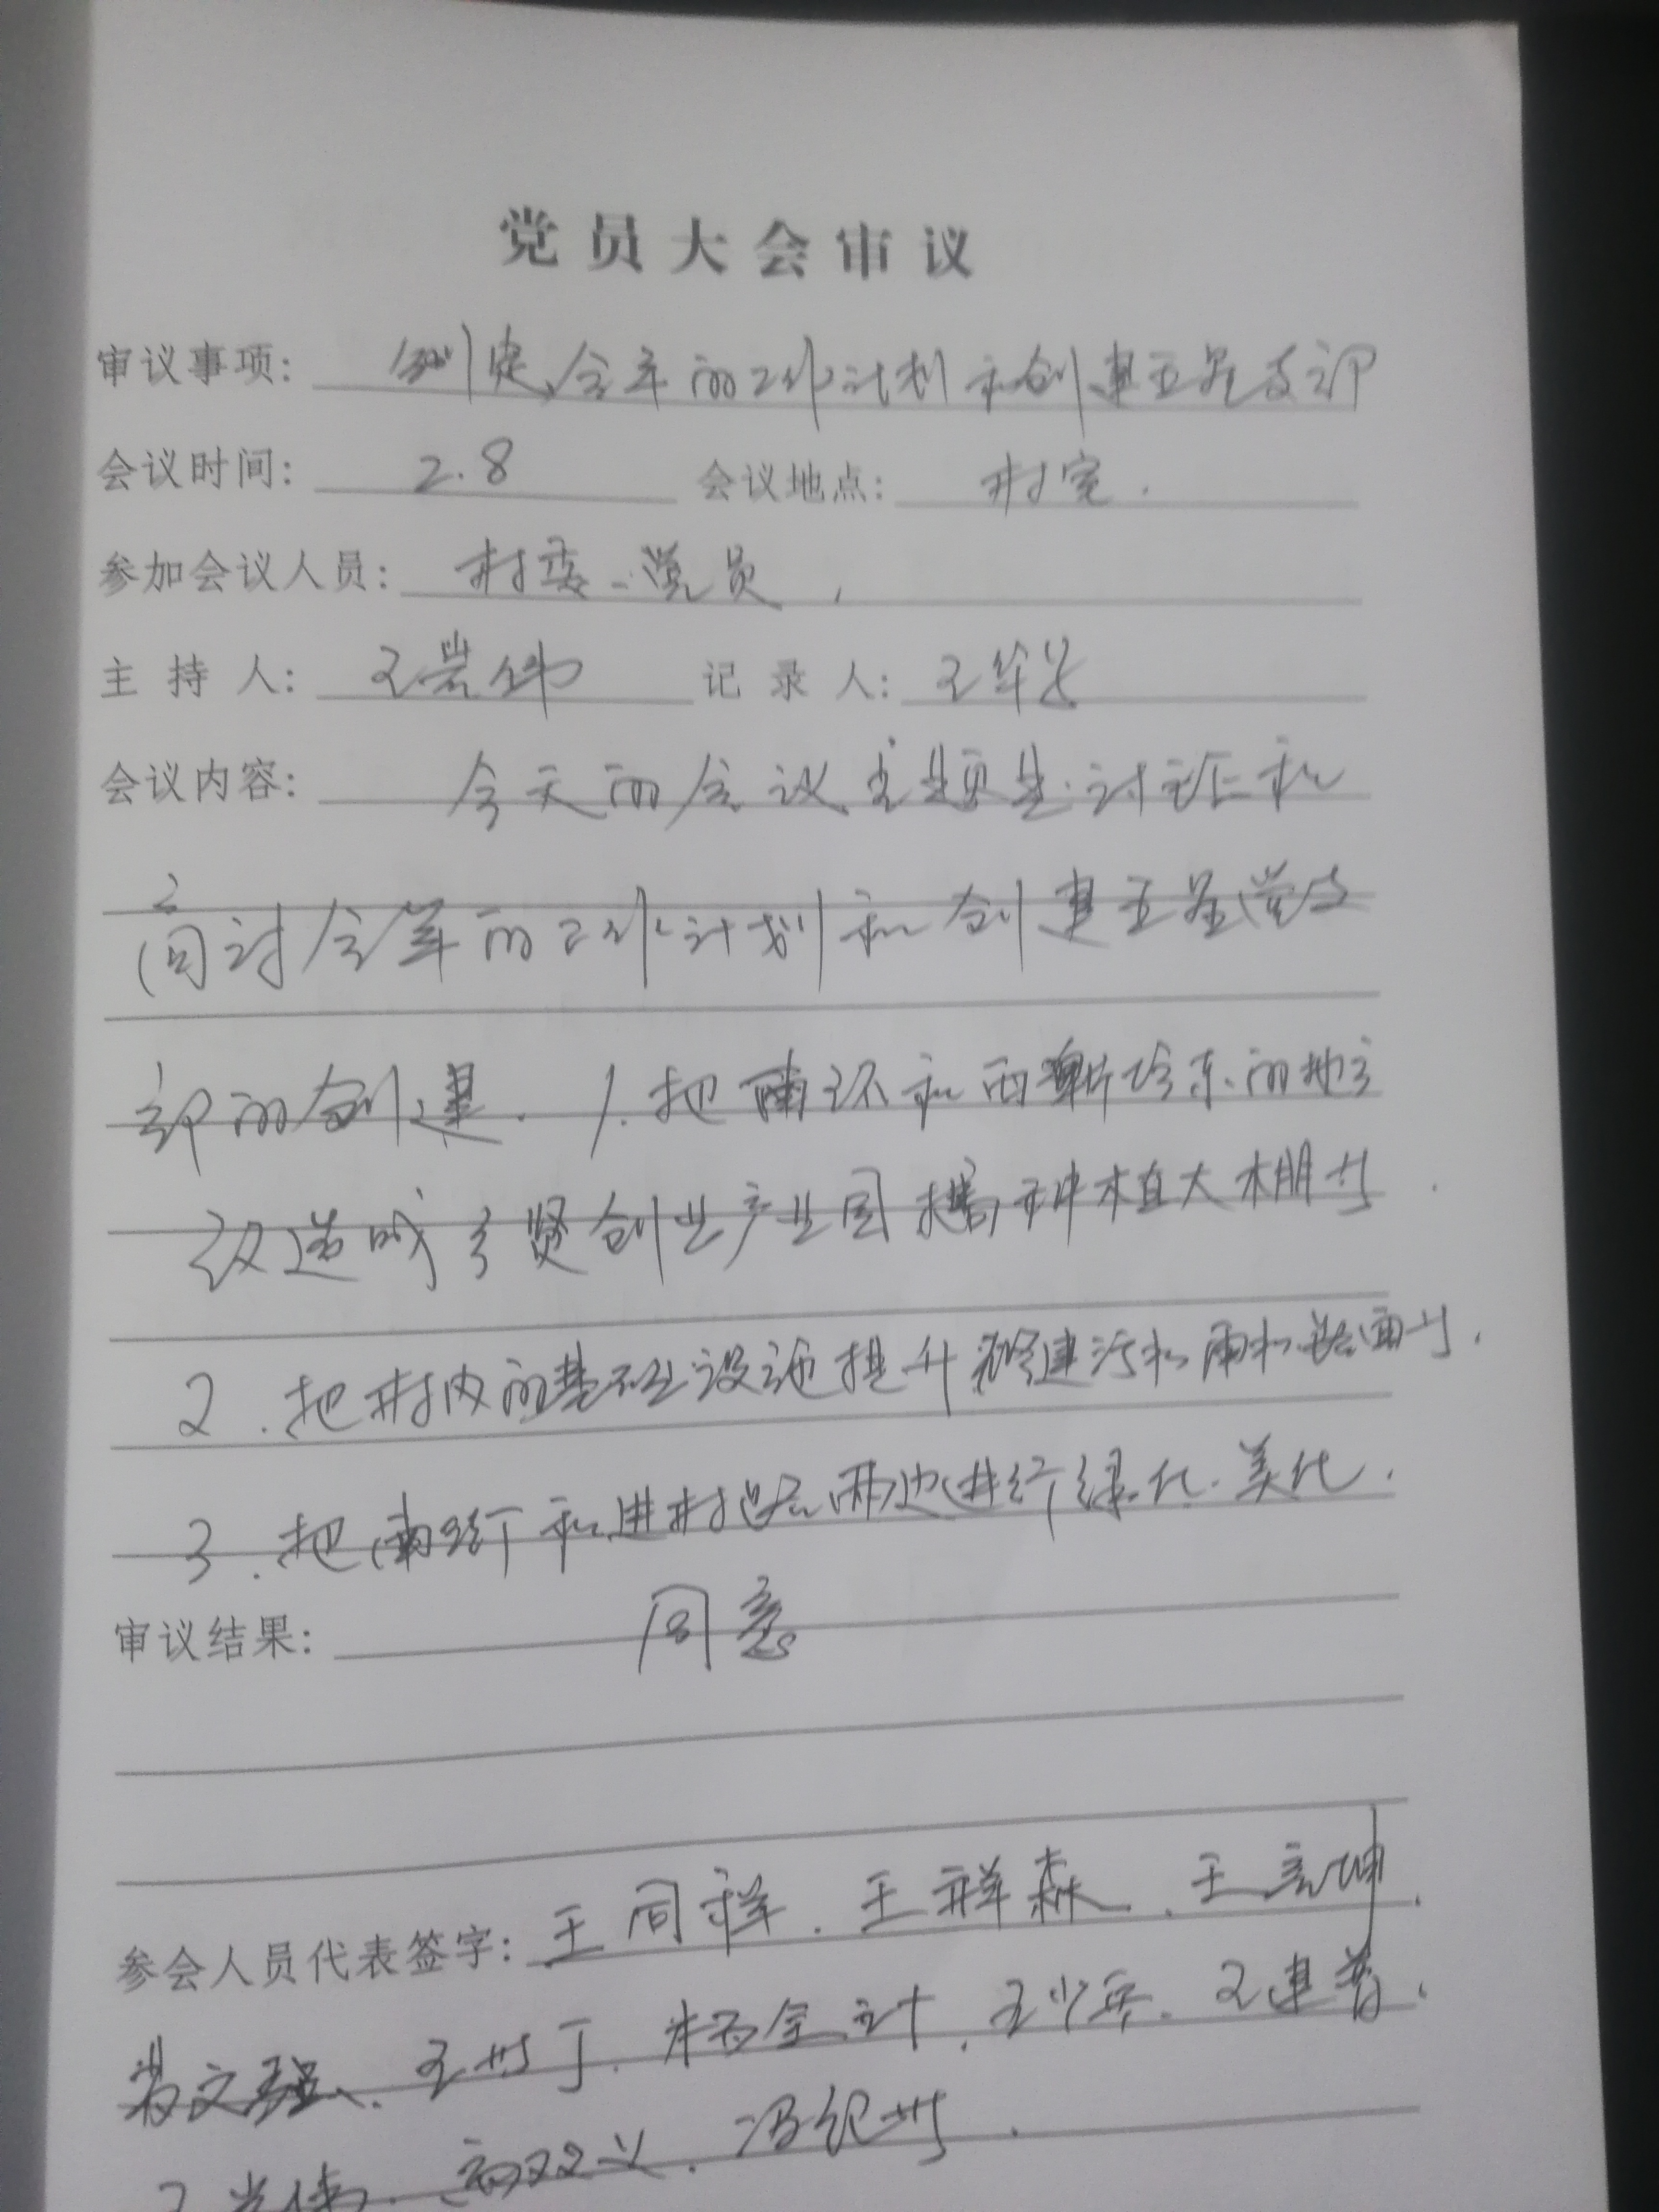 党员大会审议
审议事项: 制定全年的工作计划和创建五星支部
会议时间: 2.8 会议地点: 村室.
参加会议人员: 村委、党员,
主持人: 王岩伟 记录人: 王华
会议内容: 今天的会议主题是讨论和
商讨全年的工作计划和创建五星党支
部的创建. 1.把南环和西 东的地方
改造成乡贤创业产业园 种植大棚等.
2.把村内的基础设施提升 修建污水雨水路面等.
3.把南街和进村路两边进行绿化.美化.
审议结果: 同意
参会人员代表签字: 王同祥. 王祥森. 王坤.
文强. 王 丁. 杨全 . 王少兵. 王建 .
冯纪